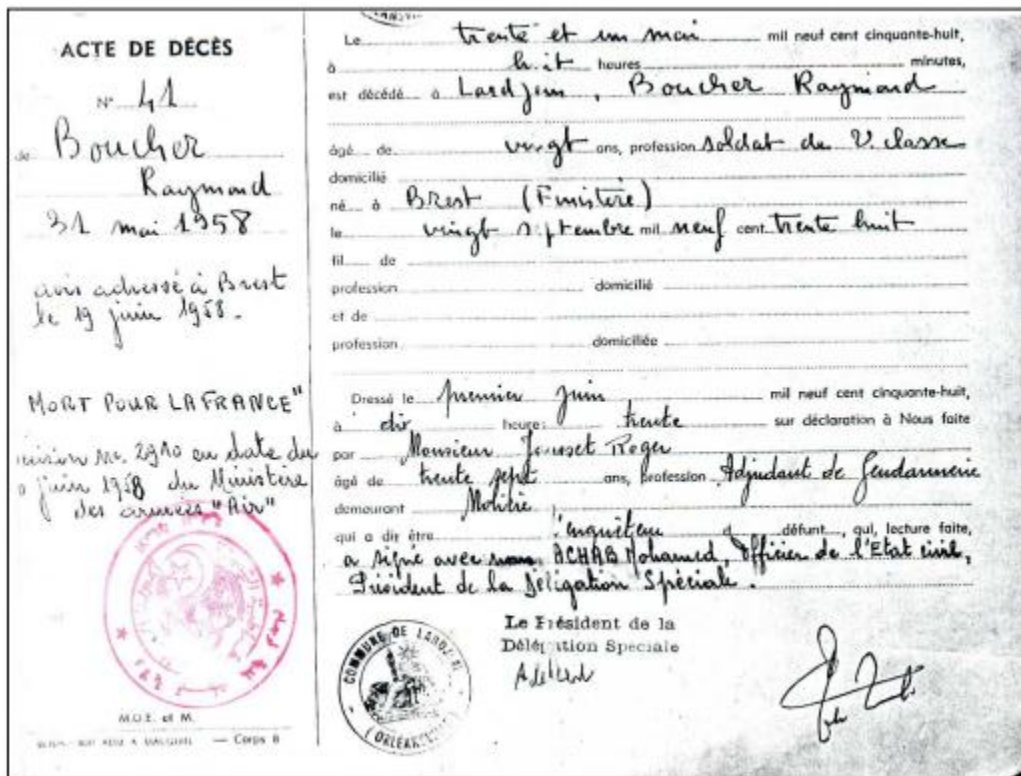 ACTE DE DÉCÈS
N° 41
de Boucher
Raymond
31 mai 1958
avis adressé à Brest
le 19 juin 1958.
MORT POUR LA FRANCE"
no. 2910 en date du
juin 1958 du Ministère
des armées "Air"
M.O.E. et M.
Corps 8
Le trente et un mai mil neuf cent cinquante-huit,
à huit heures minutes,
est décédé à Lardjem, Boucher Raymond
âgé de vingt ans, profession soldat de 2. classe
domicilié
né à Brest (Finistère)
le vingt septembre mil neuf cent trente huit
fil de
profession domicilié
et de
profession domiciliée
Dressé le premier juin mil neuf cent cinquante-huit,
à dix heures trente sur déclaration à Nous faite
par Monsieur Jousset Roger
âgé de trente sept ans, profession Adjudant de Gendarmerie
demeurant Molière
qui a dit être l'enquêteur d défunt, qui, lecture faite,
a signé avec nous ACHAB Mohamed, Officier de l'Etat civil,
Président de la Délégation Spéciale.
Le Président de la
Délégation Speciale
COMMUNE DE LARDJEM
(ORLEANSVILLE)